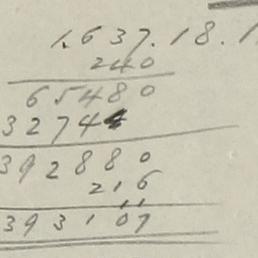 1.637.18.1
240
65480
3274
392880
216
11
393107